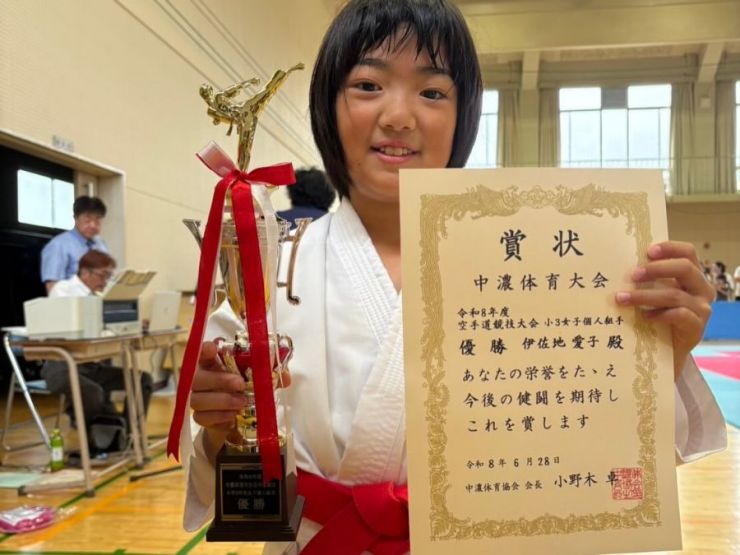 賞状
中濃体育大会
令和8年度
空手道競技大会 小3女子個人組手
優勝 伊佐地 愛子 殿
あなたの栄誉をたゝえ
今後の健闘を期待し
これを賞します
令和8年6月28日
中濃体育協会 会長 小野木 卓
優勝